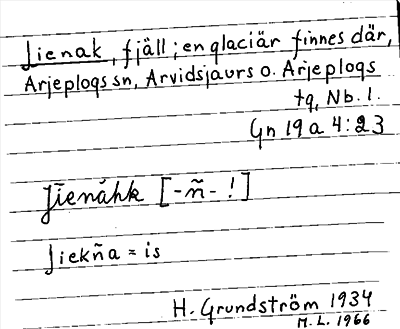 Jienak, fjäll; en glaciär finnes där,
Arjeplogs sn, Arvidsjaurs o. Arjeplogs
tg, Nb. l.
Gn 19 a 4:23
Jīenáhk [-ñ- !]
jiekña = is
H. Grundström 1934
M. L. 1966